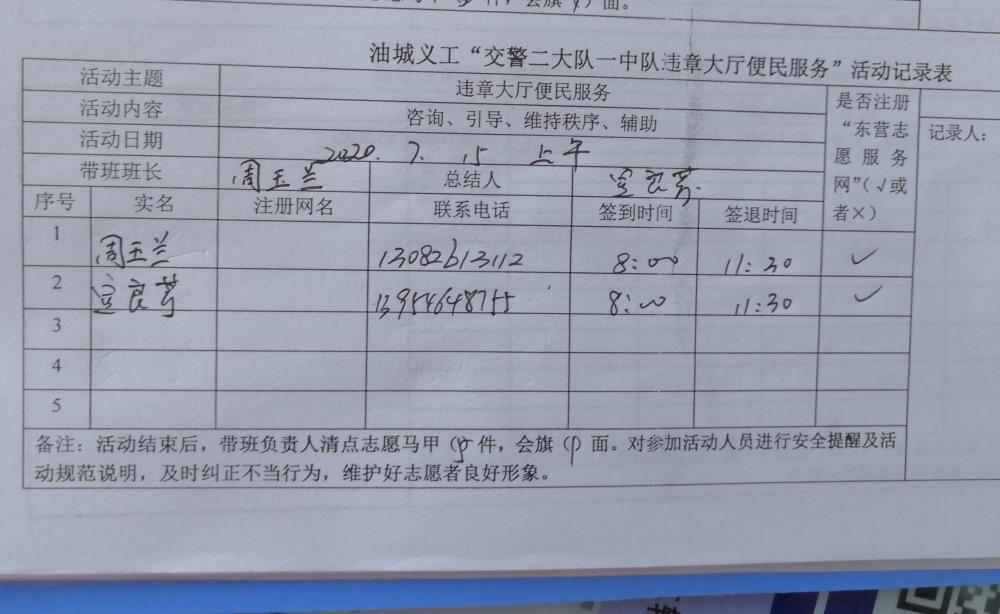 件，会旗 面。
油城义工“交警二大队一中队违章大厅便民服务”活动记录表
活动主题 违章大厅便民服务 是否注册“东营志愿服务网”（√或者×）
活动内容 咨询、引导、维持秩序、辅助 记录人：
活动日期 2020. 7. 15 上午
带班班长 周玉兰 总结人
序号 实名 注册网名 联系电话 签到时间 签退时间
1 周玉兰 13082613112 8:00 11:30 ✓
2 13954648755 8:00 11:30 ✓
3
4
5
备注：活动结束后，带班负责人清点志愿马甲（ 件，会旗（ 面。对参加活动人员进行安全提醒及活
动规范说明，及时纠正不当行为，维护好志愿者良好形象。